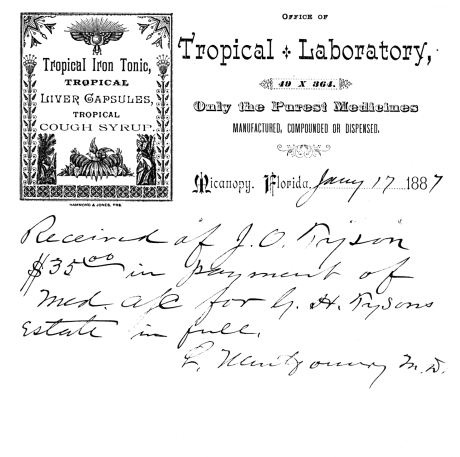 OFFICE OF
Tropical Laboratory,
49 X 864.
Only the Purest Medicines
MANUFACTURED, COMPOUNDED OR DISPENSED.
Tropical Iron Tonic,
TROPICAL
LIVER CAPSULES,
TROPICAL
COUGH SYRUP.
HAMMOND & JONES, PRS.
Micanopy, Florida, Jany 17 1887
Received of J. O. Tyson
$35.00 in payment of
Med. a/c for G. H. Tysons
Estate in full.
L. Montgomery M.D.